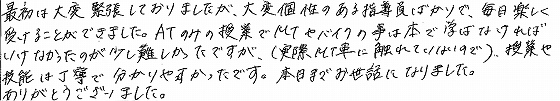 最初は大変緊張しておりましたが、大変個性のある指導員ばかりで、毎日楽しく
受けることができました。ATのみの授業でMTやバイクの事は本で学ばなければ
いけなかったのが少し難しかったですが、(実際MT車に触れていないので)、授業や
技能は丁寧で分かりやすかったです。本日までお世話になりました。
ありがとうございました。